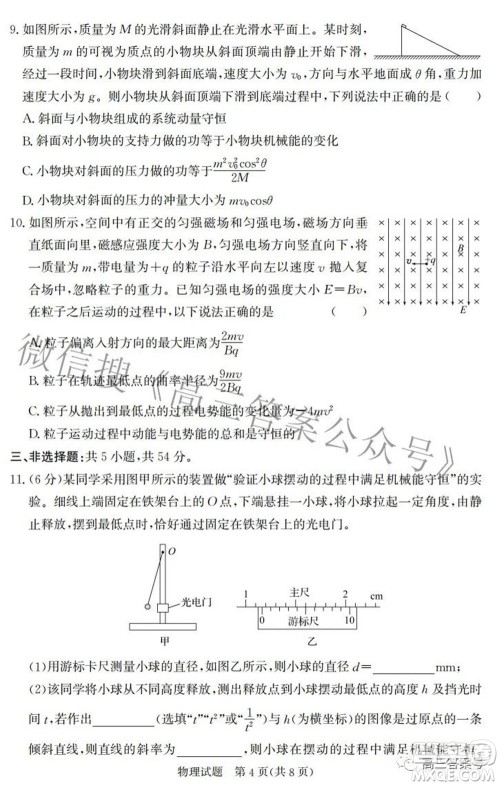 9. 如图所示,质量为 M 的光滑斜面静止在光滑水平面上。某时刻,
质量为 m 的可视为质点的小物块从斜面顶端由静止开始下滑,
经过一段时间,小物块滑到斜面底端,速度大小为 v₀,方向与水平地面成 θ 角,重力加
速度大小为 g。则小物块从斜面顶端下滑到底端过程中,下列说法中正确的是( )
A. 斜面与小物块组成的系统动量守恒
B. 斜面对小物块的支持力做的功等于小物块机械能的变化
C. 小物块对斜面的压力做的功等于 m²v₀²cos²θ/2M
D. 小物块对斜面的压力的冲量大小为 mv₀cosθ
10. 如图所示,空间中有正交的匀强磁场和匀强电场,磁场方向垂
直纸面向里,磁感应强度大小为 B,匀强电场方向竖直向下,将
一质量为 m,带电量为+q 的粒子沿水平向左以速度 v 抛入复
合场中,忽略粒子的重力。已知匀强电场的强度大小 E=Bv,
在粒子之后运动的过程中,以下说法正确的是( )
B
v q
E
A. 粒子偏离入射方向的最大距离为 2mv/Bq
B. 粒子在轨迹最低点的曲率半径为 9mv/2Bq
C. 粒子从抛出到最低点的过程电势能的变化量为−4mv²
D. 粒子运动过程中动能与电势能的总和是守恒的
微信搜《高三答案公众号》
三、非选择题:共 5 小题,共 54 分。
11. (6 分)某同学采用图甲所示的装置做“验证小球摆动的过程中满足机械能守恒”的实
验。细线上端固定在铁架台上的 O 点,下端悬挂一小球,将小球拉起一定角度,由静
止释放,摆到最低点时,恰好通过固定在铁架台上的光电门。
O
光电门
甲
1 主尺 2 cm
0 游标尺 10
乙
(1)用游标卡尺测量小球的直径,如图乙所示,则小球的直径 d=________mm;
(2)该同学将小球从不同高度释放,测出释放点到小球摆动最低点的高度 h 及挡光时
间 t,若作出________(选填“t”“t²”或“1/t²”)与 h(为横坐标)的图像是过原点的一条
倾斜直线,则直线的斜率为________,则小球在摆动的过程中满足机械能守恒
物理试题 第 4 页(共 8 页)
高三答案号